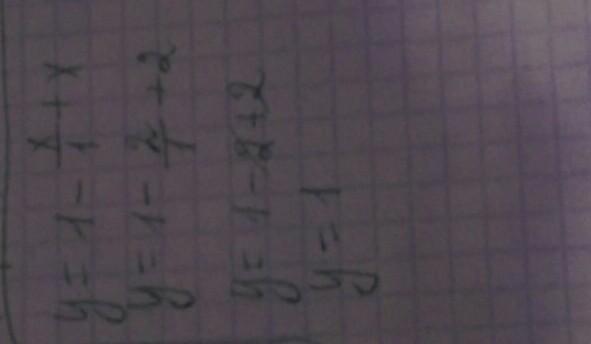 y = 1 - x/1 + x
y = 1 - 2/1 + 2
y = 1 - 2 + 2
y = 1